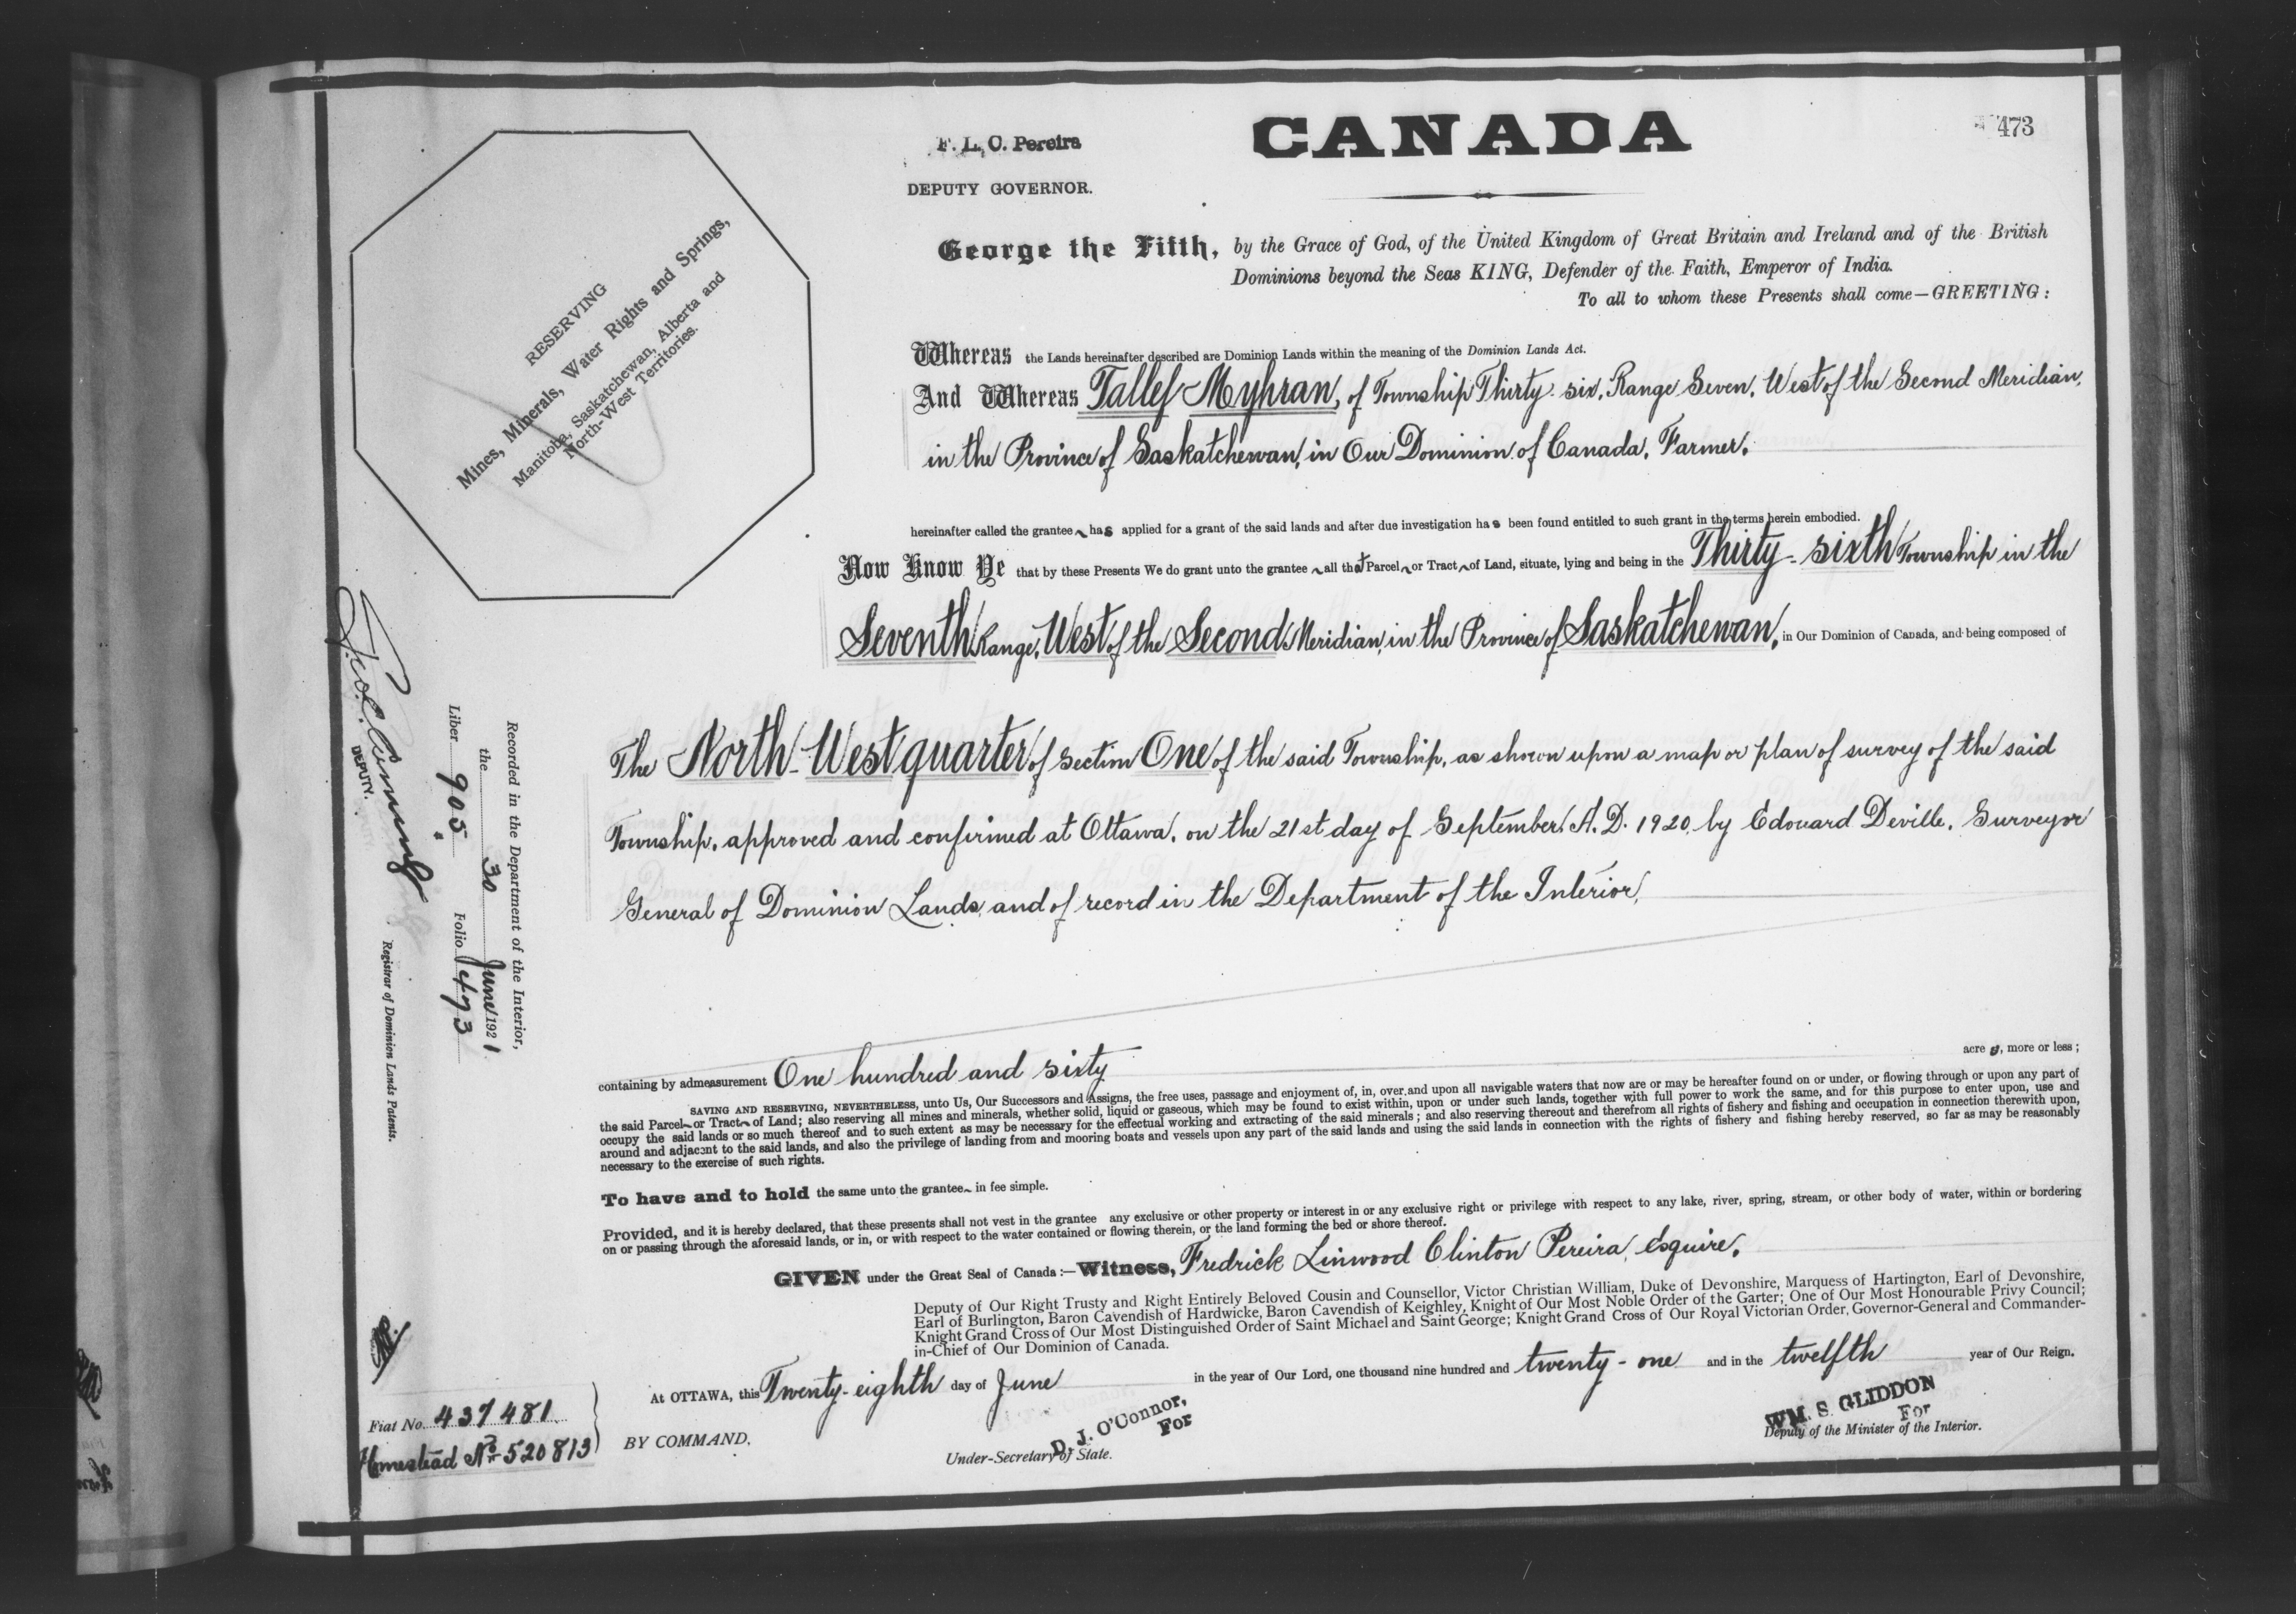 F. L. C. Pereira
DEPUTY GOVERNOR.
CANADA
473
RESERVING
Mines, Minerals, Water Rights and Springs,
Manitoba, Saskatchewan, Alberta and
North-West Territories.
George the Fifth, by the Grace of God, of the United Kingdom of Great Britain and Ireland and of the British
Dominions beyond the Seas KING, Defender of the Faith, Emperor of India.
To all to whom these Presents shall come—GREETING:
Whereas the Lands hereinafter described are Dominion Lands within the meaning of the Dominion Lands Act.
And Whereas Tallef Myhran, of Township Thirty-six, Range Seven, West of the Second Meridian,
in the Province of Saskatchewan, in Our Dominion of Canada, Farmer.
hereinafter called the grantee has applied for a grant of the said lands and after due investigation has been found entitled to such grant in the terms herein embodied.
Now Know Ye that by these Presents We do grant unto the grantee all that Parcel or Tract of Land, situate, lying and being in the Thirty-sixth Township in the
Seventh Range, West of the Second Meridian, in the Province of Saskatchewan, in Our Dominion of Canada, and being composed of
The North-West quarter of Section One of the said Township, as shown upon a map or plan of survey of the said
Township, approved and confirmed at Ottawa, on the 21st day of September, A.D. 1920, by Edouard Deville, Surveyor
General of Dominion Lands, and of record in the Department of the Interior,
containing by admeasurement One hundred and sixty acres, more or less;
SAVING AND RESERVING, NEVERTHELESS, unto Us, Our Successors and Assigns, the free uses, passage and enjoyment of, in, over and upon all navigable waters that now are or may be hereafter found on or under, or flowing through or upon any part of
the said Parcel or Tract of Land; also reserving all mines and minerals, whether solid, liquid or gaseous, which may be found to exist within, upon or under such lands, together with full power to work the same, and for this purpose to enter upon, use and
occupy the said lands or so much thereof and to such extent as may be necessary for the effectual working and extracting of the said minerals; and also reserving thereout and therefrom all rights of fishery and fishing and occupation in connection therewith upon,
around and adjacent to the said lands, and also the privilege of landing from and mooring boats and vessels upon any part of the said lands and using the said lands in connection with the rights of fishery and fishing hereby reserved, so far as may be reasonably
necessary to the exercise of such rights.
To have and to hold the same unto the grantee in fee simple.
Provided, and it is hereby declared, that these presents shall not vest in the grantee any exclusive or other property or interest in or any exclusive right or privilege with respect to any lake, river, spring, stream, or other body of water, within or bordering
on or passing through the aforesaid lands, or in, or with respect to the water contained or flowing therein, or the land forming the bed or shore thereof.
GIVEN under the Great Seal of Canada:—Witness, Fredrick Linwood Clinton Pereira, Esquire,
Deputy of Our Right Trusty and Right Entirely Beloved Cousin and Counsellor, Victor Christian William, Duke of Devonshire, Marquess of Hartington, Earl of Devonshire,
Earl of Burlington, Baron Cavendish of Hardwicke, Baron Cavendish of Keighley, Knight of Our Most Noble Order of the Garter; One of Our Most Honourable Privy Council;
Knight Grand Cross of Our Most Distinguished Order of Saint Michael and Saint George; Knight Grand Cross of Our Royal Victorian Order, Governor-General and Commander-
in-Chief of Our Dominion of Canada.
At OTTAWA, this Twenty-eighth day of June in the year of Our Lord, one thousand nine hundred and twenty-one and in the twelfth year of Our Reign.
BY COMMAND,
D. J. O'Connor,
For
Under-Secretary of State.
WM. S. GLIDDON
For
Deputy of the Minister of the Interior.
Recorded in the Department of the Interior,
the 30 June 1921
Liber 905 Folio 473
DEPUTY. Registrar of Dominion Lands Patents.
Fiat No. 437481
Homestead No 520813